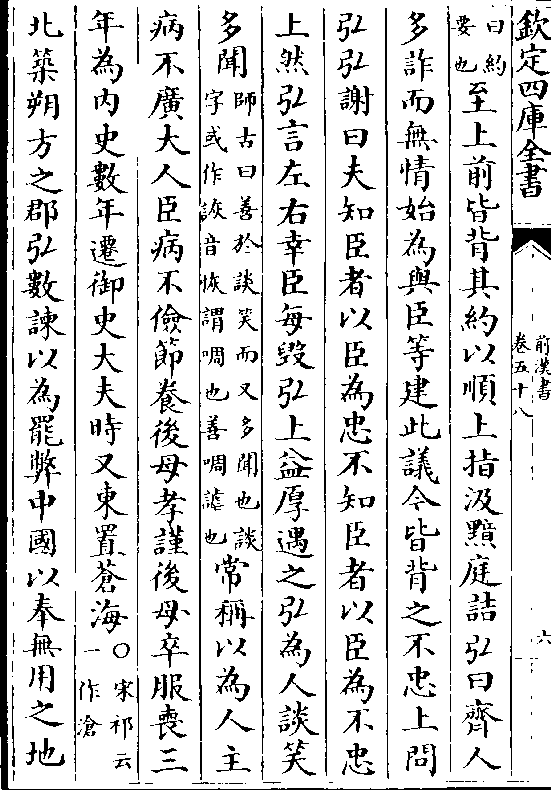 欽定四庫全書
前漢書
卷五十八
六
曰約
要也
至上前皆背其約以順上指汲黯庭詰弘曰齊人
多詐而無情始為與臣等建此議今皆背之不忠上問
弘弘謝曰夫知臣者以臣為忠不知臣者以臣為不忠
上然弘言左右幸臣每毀弘上益厚遇之弘為人談笑
多聞
師古曰善於談笑而又多聞也談
字或作詼音恢謂啁也善啁謔也
常稱以為人主
病不廣大人臣病不儉節養後母孝謹後母卒服喪三
年為內史數年遷御史大夫時又東置蒼海
○宋祁云
一作滄
北築朔方之郡弘數諫以為罷弊中國以奉無用之地